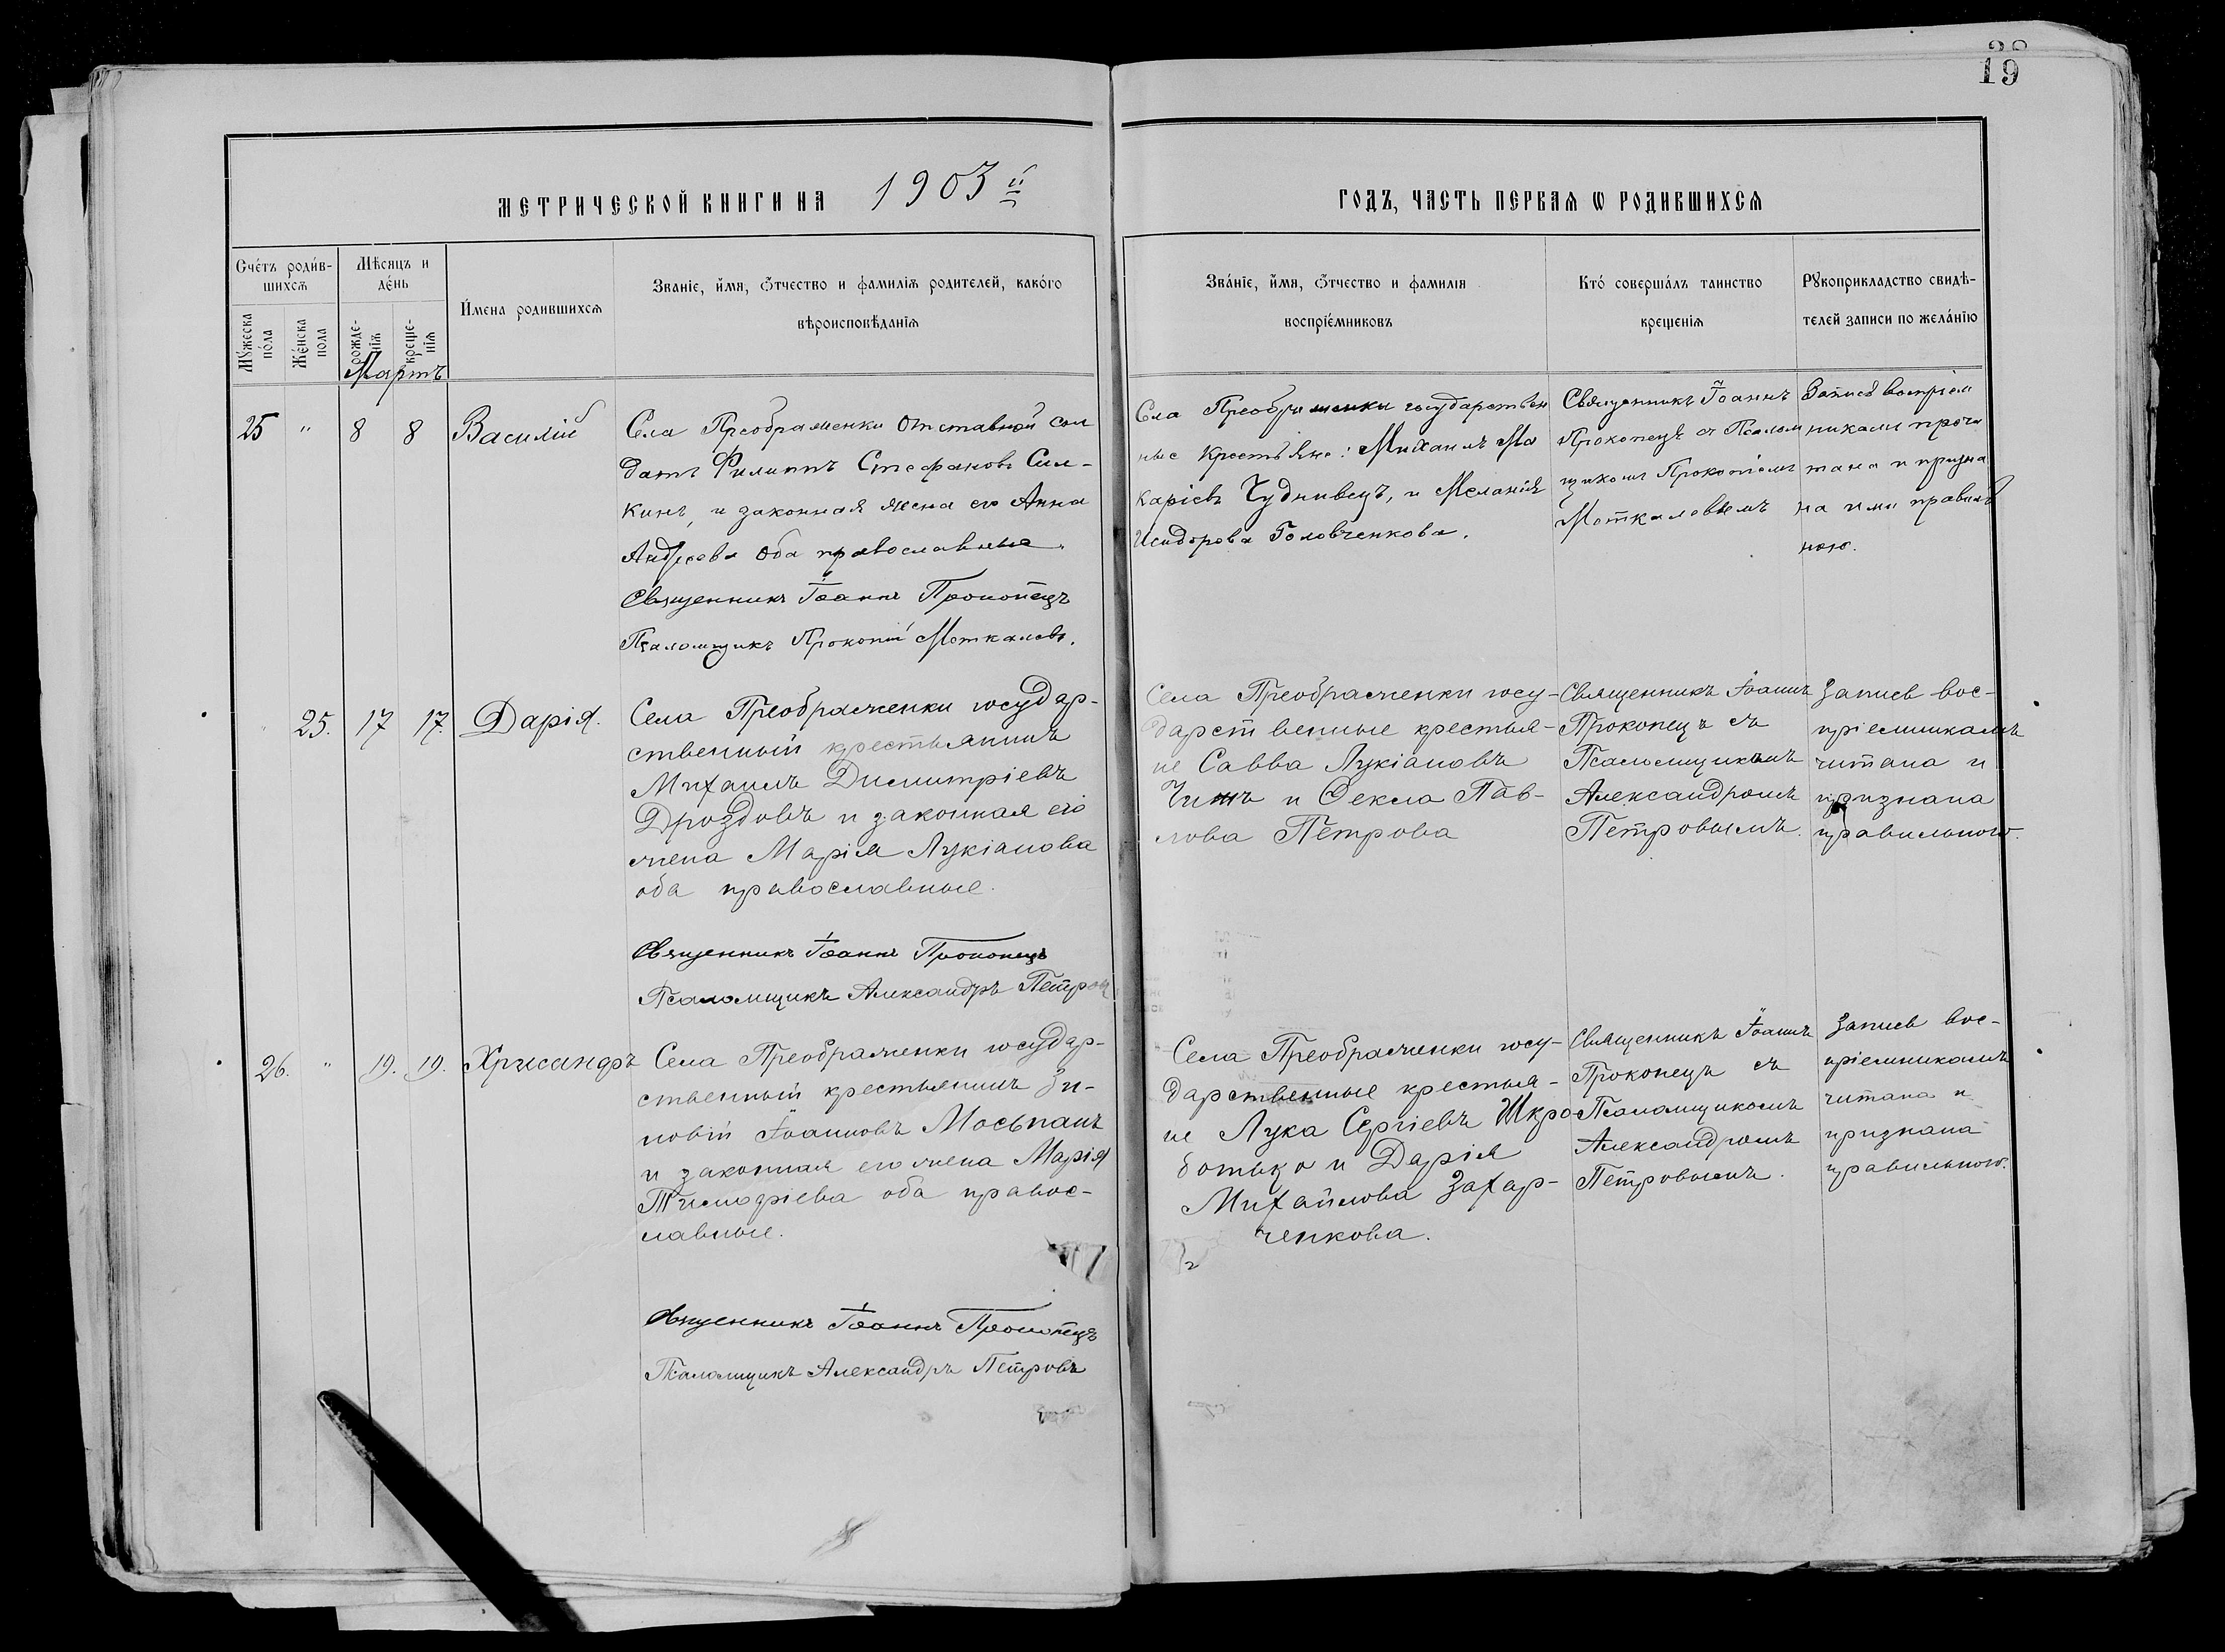 38
19
МЕТРИЧЕСКОЙ КНИГИ НА 1903 й
ГОДЪ, ЧАСТЬ ПЕРВАЯ Ѡ РОДИВШИХСѦ
Счétъ роди́в-
шихсѧ
Мѣсяцъ и
дéнь
Имена родившихсѧ
Званіе, и́мя, ѻ́тчество и фамилія родителей, какóго
вѣроисповѣданіѧ
Мꙋжеска
пóла
Жéнска
пола
рожде-
нія
креще-
нія
Мартъ
Звáніе, и́мя, ѻ́тчество и фамилія
воспріéмниковъ
Ктó совершáлъ таинство
крещенія
Рꙋкоприкладство свидѣ-
телей записи по желáнію
25 " 8 8 Василій
Села Преображенки отставной сол
датъ Филиппъ Стефановъ Сил-
кинъ, и законная жена его Анна
Андреева оба православные.
Священникъ Іоаннъ Прокопецъ
Псаломщикъ Прокопій Моткалевъ.
Села Преображенки государствен
ные крестьяне: Михаилъ Ма
каріевъ Чуднивецъ, и Меланія
Исидорова Головченкова.
Священникъ Іоаннъ
Прокопецъ съ Псалом
щикомъ Прокопіемъ
Моткалевымъ
Запись воспріем
никами прочи
тана и призна
на ими правиль
ною.
25. 17 17. Дарія.
Села Преображенки государ-
ственный крестьянинъ
Михаилъ Димитріевъ
Дроздовъ и законная его
жена Марія Лукіанова
оба православные.
Священникъ Іоаннъ Прокопецъ
Псаломщикъ Александръ Петров
Села Преображенки госу-
дарственные крестья-
не Савва Лукіановъ
Чижъ и Ѳекла Пав-
лова Петрова
Священникъ Іоаннъ
Прокопецъ съ
Псаломщикомъ
Александромъ
Петровымъ.
Запись вос-
пріемникамъ
читана и
признана
правильною.
26. " 19. 19. Хрисанфъ
Села Преображенки государ-
ственный крестьянинъ Зи-
новій Іоанновъ Мосьпанъ
и законная его жена Марія
Тимоѳіева оба правос-
лавные.
Священникъ Іоаннъ Прокопецъ
Псаломщикъ Александръ Петровъ
Села Преображенки госу-
дарственные крестья-
не Лука Сергіевъ Шкро
ботько и Дарія
Михайлова Захар-
ченкова.
Священникъ Іоаннъ
Прокопецъ съ
Псаломщикомъ
Александромъ
Петровымъ.
Запись вос-
пріемникамъ
читана и
признана
правильною.